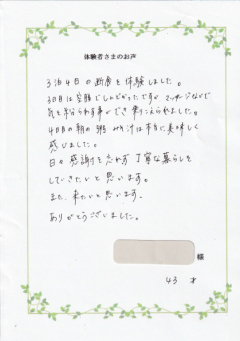 体験者さまのお声
3泊4日の断食を体験しました。
3日目は空腹でしんどかったですが マッサージなどで
気を紛らわす事ができ 乗りこえられました。
4日目の朝の粥 みそ汁は本当に美味しく
感じました。
日々感謝を忘れず 丁寧な暮らしを
していきたいと思います。
また、来たいと思います。
ありがとうございました。
様
43 才